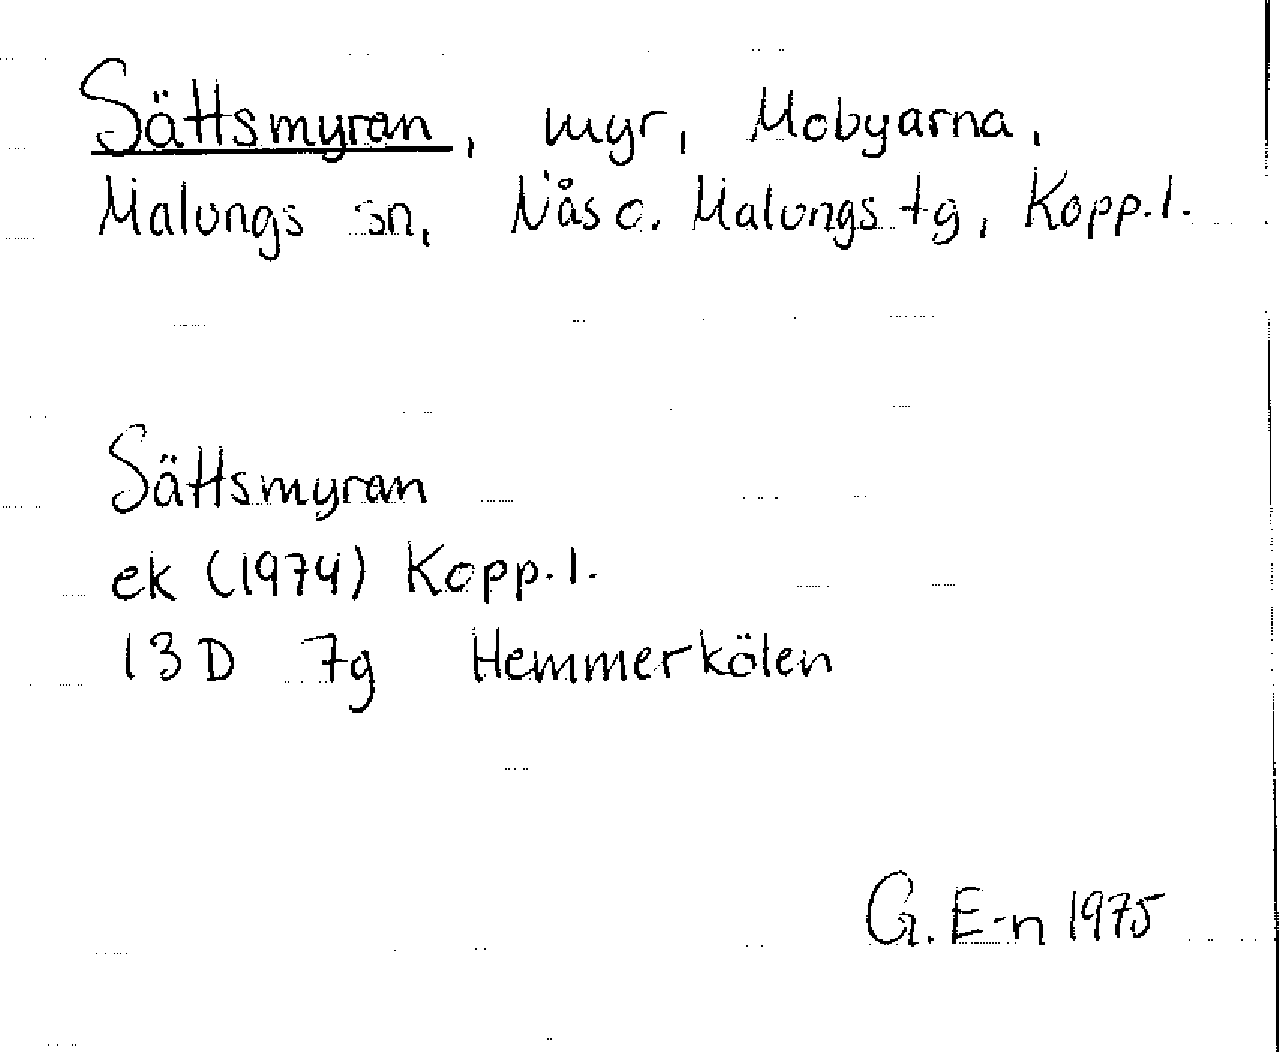 Sättsmyran, myr, Mobyarna,
Malungs sn, Nås o. Malungs tg, Kopp.l.
Sättsmyran
ek (1974) Kopp.l.
13D 7g Hemmerkölen
G. E-n 1975